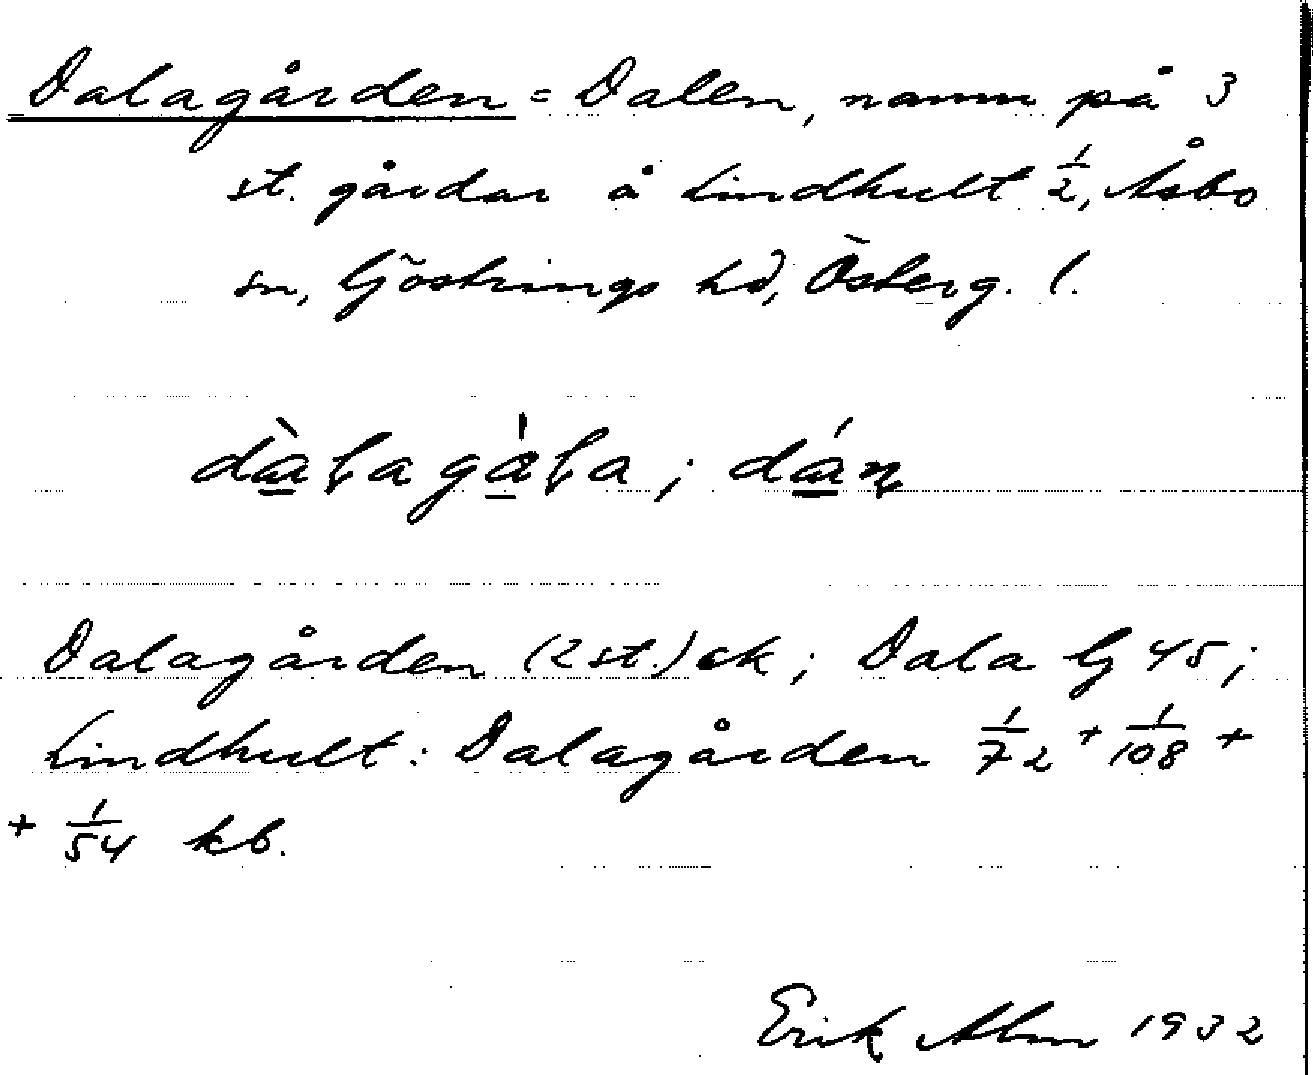 Dalagården = Dalen, namn på 3
st. gårdar å Lindhult 1/2, Åsbo
sn, Göstrings hd, Österg. l.
dàɽagàɽa; dán̥
Dalagården (2 st.) ek; Dala G 45;
Lindhult: Dalagården 1/72 + 1/108 +
+ 1/54 kb.
Erik Alm 1932